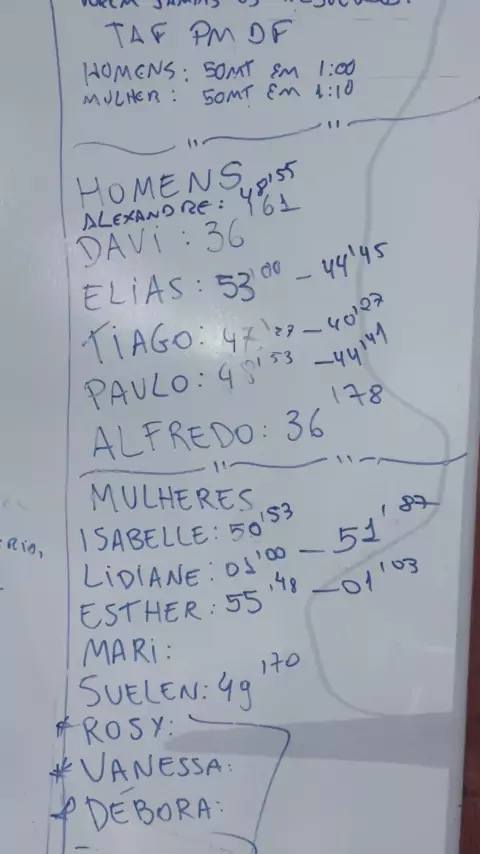 TAF PM DF
HOMENS: 50MT EM 1:00
MULHER: 50MT EM 1:10
HOMENS
ALEXANDRE: 48'55
461
DAVI: 36
ELIAS: 53'00 - 44'45
TIAGO: 47'27 - 40'27
PAULO: 48'53 - 44'41
ALFREDO: 36'78
MULHERES
ISABELLE: 50'53
LIDIANE: 01'00 - 51'87
ESTHER: 55'48 - 01'03
MARI:
SUELEN: 49'70
* ROSY:
* VANESSA:
* DÉBORA: